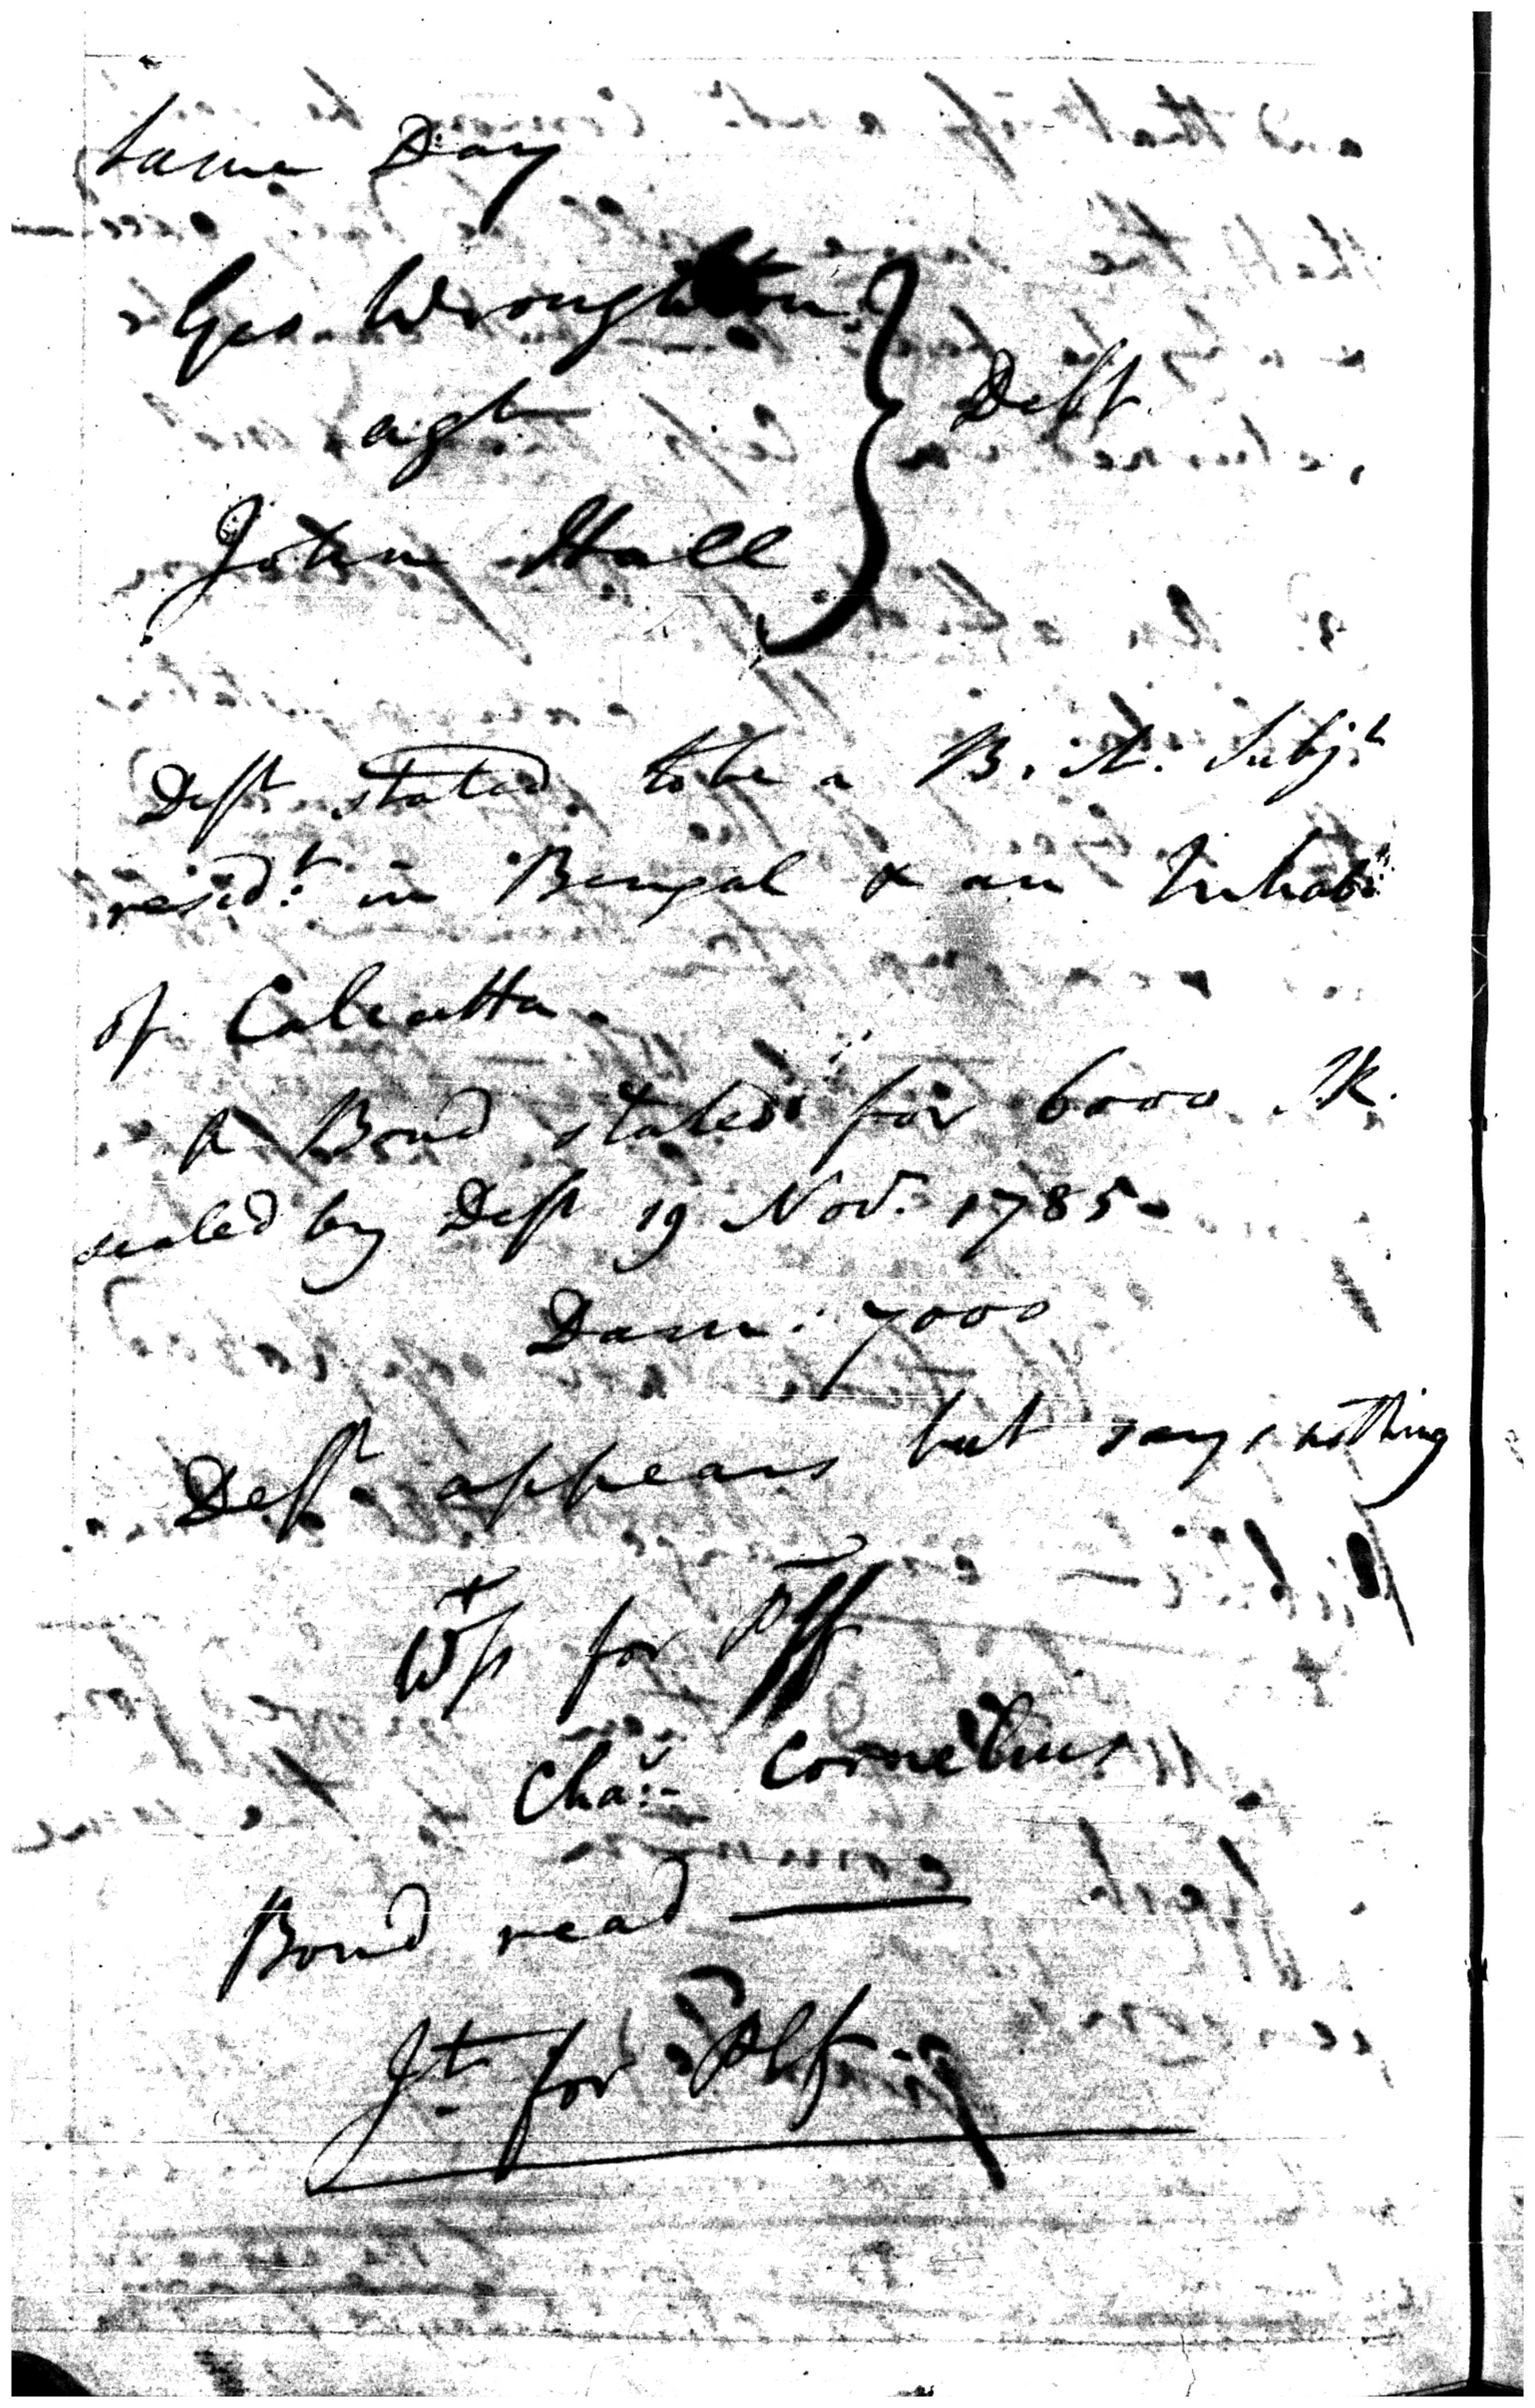 Same Day
Geo. Wroughton
agt
John Hall
Debt
Deft stated to be a B. St. Subjt
residt in Bengal & an Inhabt
of Calcutta.
A Bond stated for 6000 SR.
sealed by Deft 19 Nov. 1785.
Dam: 7000
Deft appears but says nothing
Wts for Plff
Chas. Cornelius
Bond read
Jt for Plff